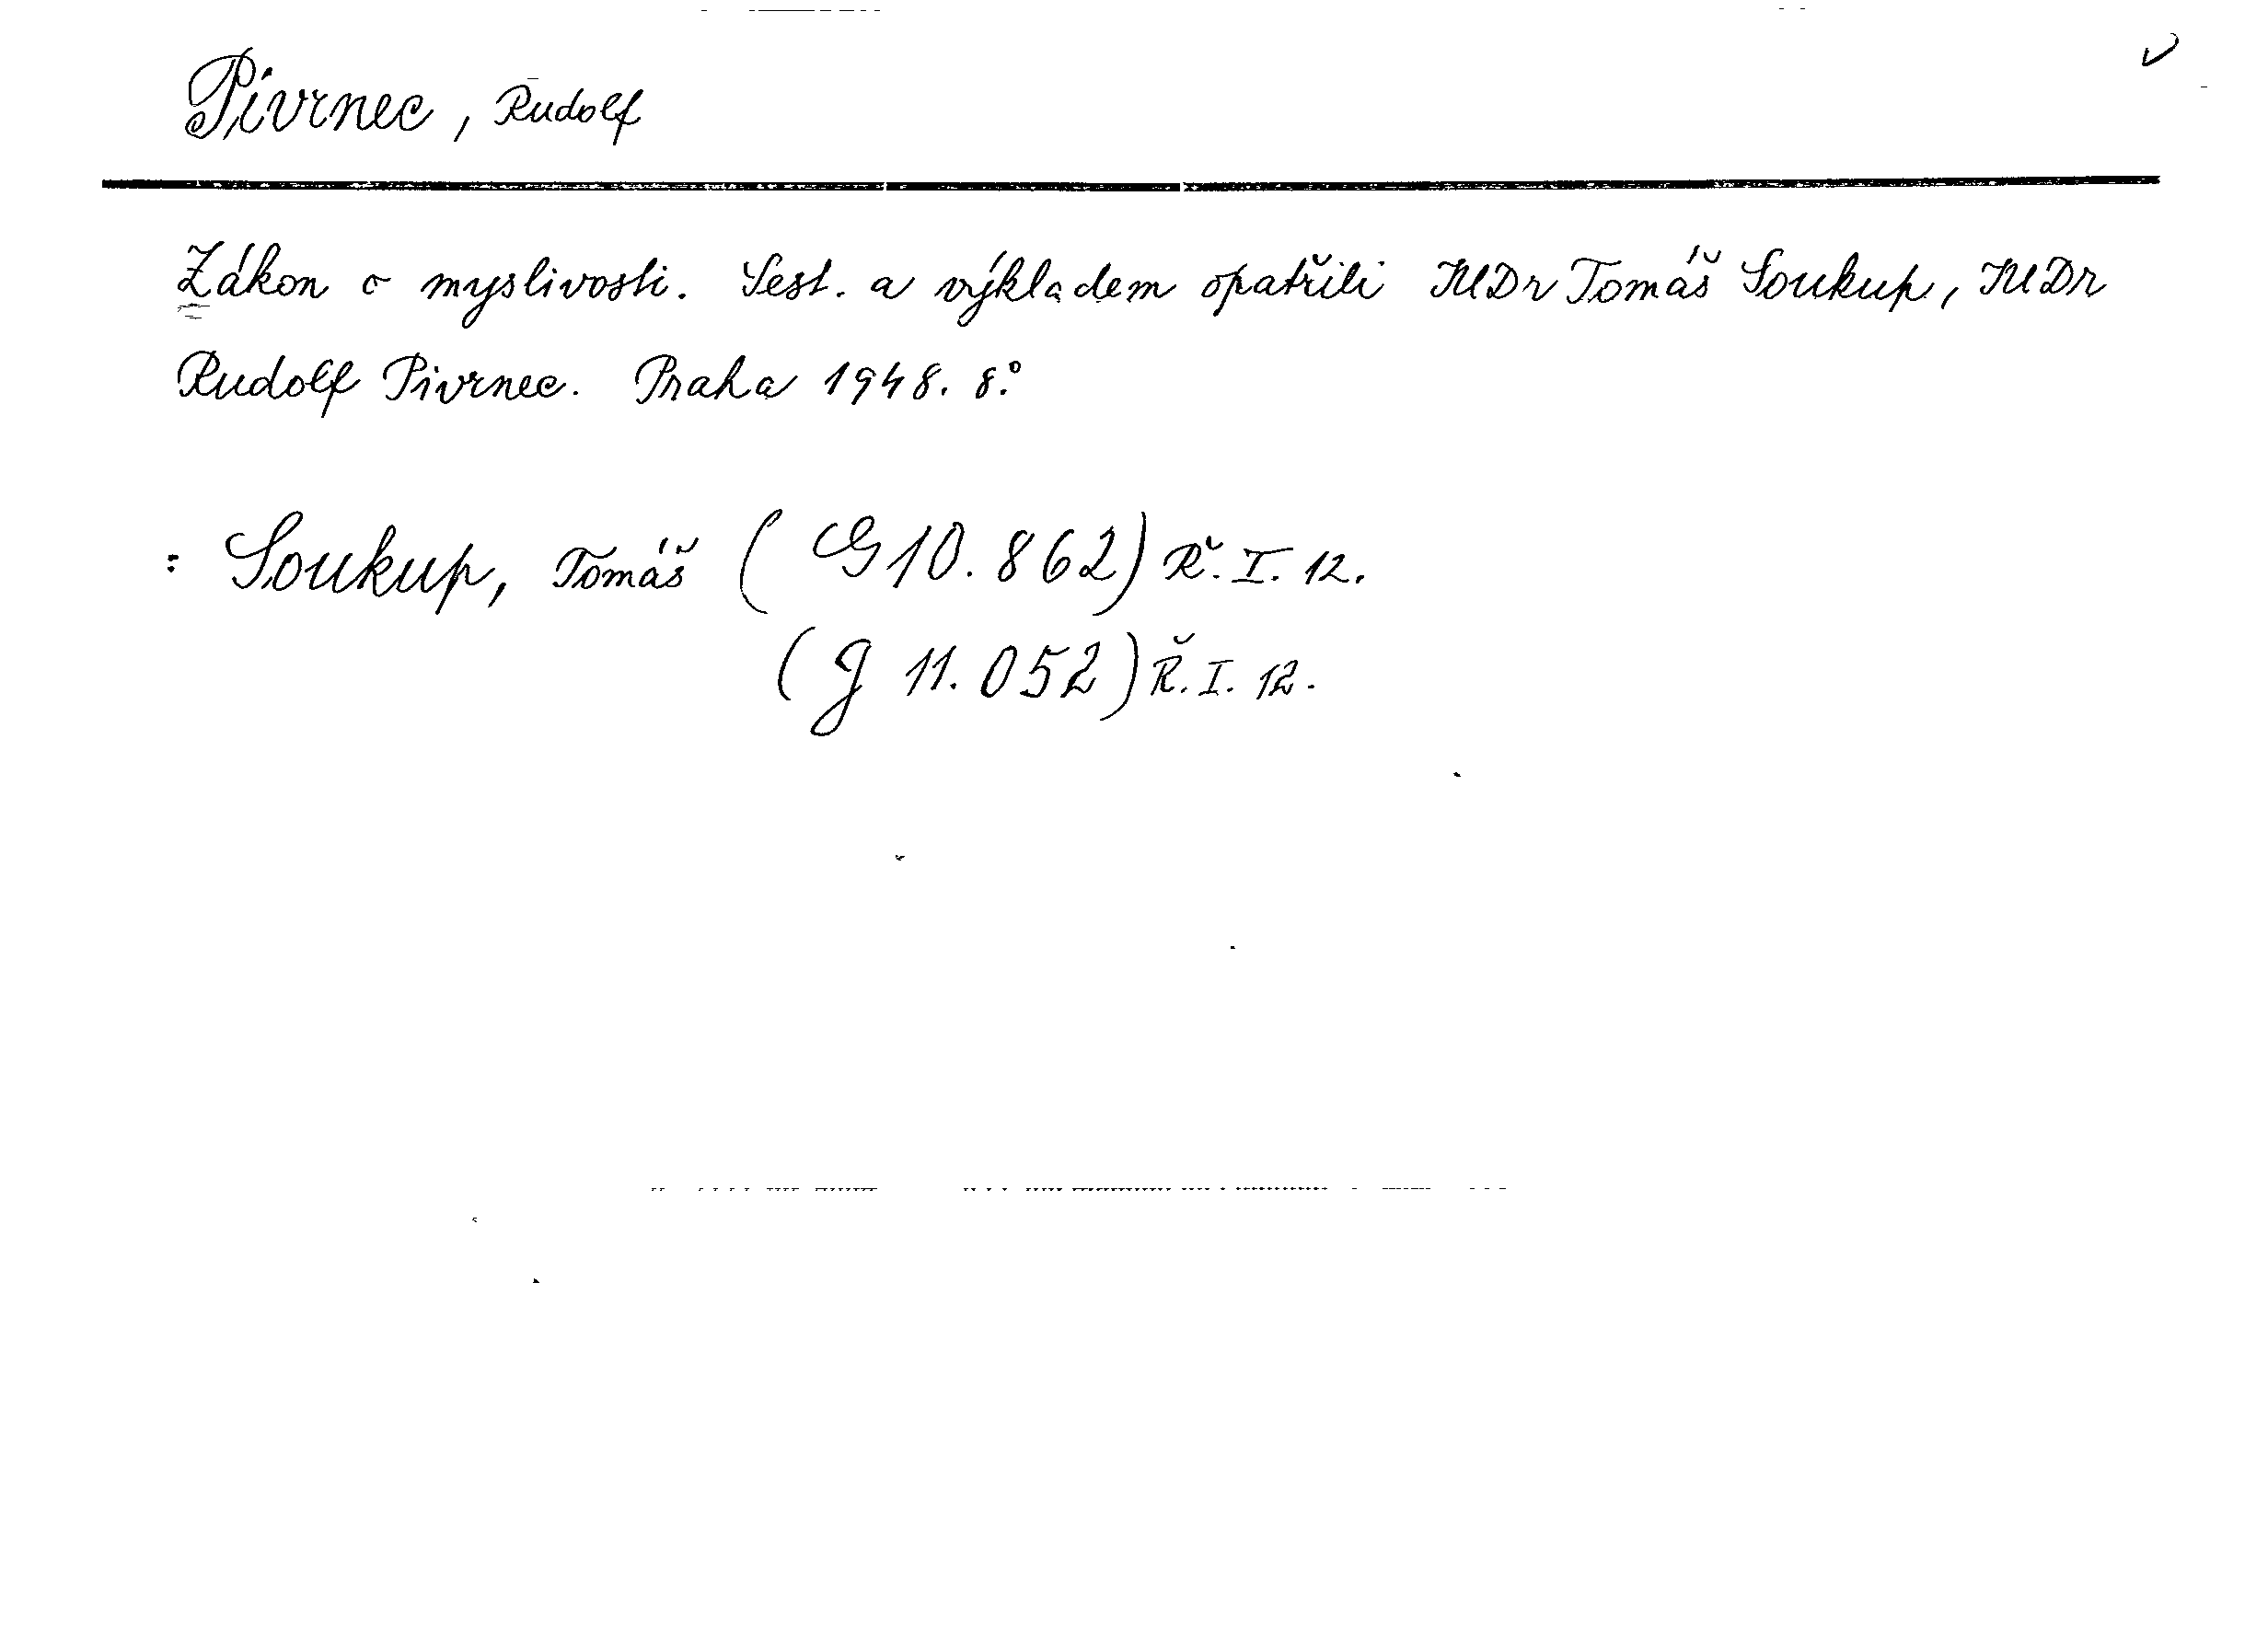 Pivrnec, Rudolf
Zákon o myslivosti. Sest. a výkladem opatřili JUDr Tomáš Soukup, JUDr
Rudolf Pivrnec. Praha 1948. 8.°
: Soukup, Tomáš (G 10.862) Ř. I. 12.
(G 11.052) Ř. I. 12.